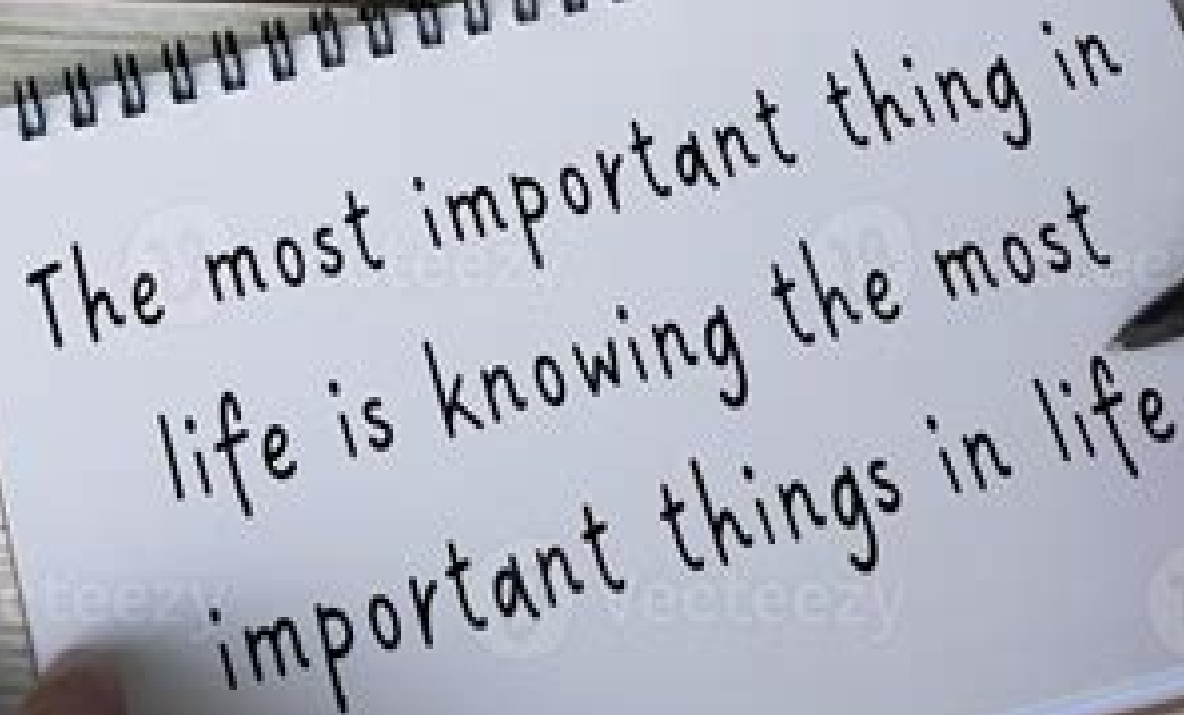 The most important thing in
life is knowing the most
important things in life
vecteezy